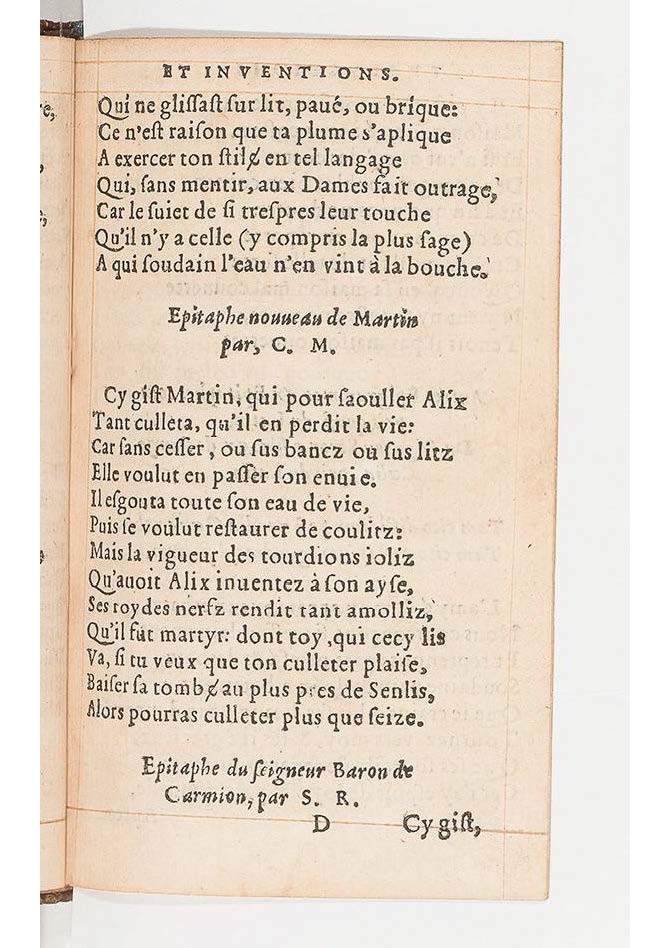 ET INVENTIONS.
Qui ne gliſſaſt ſur lit, paué, ou brique:
Ce n'eſt raiſon que ta plume s'aplique
A exercer ton ſtilɇ en tel langage
Qui, ſans mentir, aux Dames fait outrage,
Car le ſuiet de ſi treſpres leur touche
Qu'il n'y a celle (y compris la plus ſage)
A qui ſoudain l'eau n'en vint à la bouche.
Epitaphe nouueau de Martin
par, C. M.
Cy giſt Martin, qui pour ſaouller Alix
Tant culleta, qu'il en perdit la vie:
Car ſans ceſſer, ou ſus bancz ou ſus litz
Elle voulut en paſſer ſon enuie.
Il eſgouta toute ſon eau de vie,
Puis ſe voulut reſtaurer de coulitz:
Mais la vigueur des tourdions ioliz
Qu'auoit Alix inuentez à ſon ayſe,
Ses roydes nerfz rendit tant amolliz,
Qu'il fut martyr: dont toy ,qui cecy lis
Va, ſi tu veux que ton culleter plaiſe,
Baiſer ſa tombɇ au plus pres de Senlis,
Alors pourras culleter plus que ſeize.
Epitaphe du ſeigneur Baron de
Carmion, par S. R.
D Cy giſt,